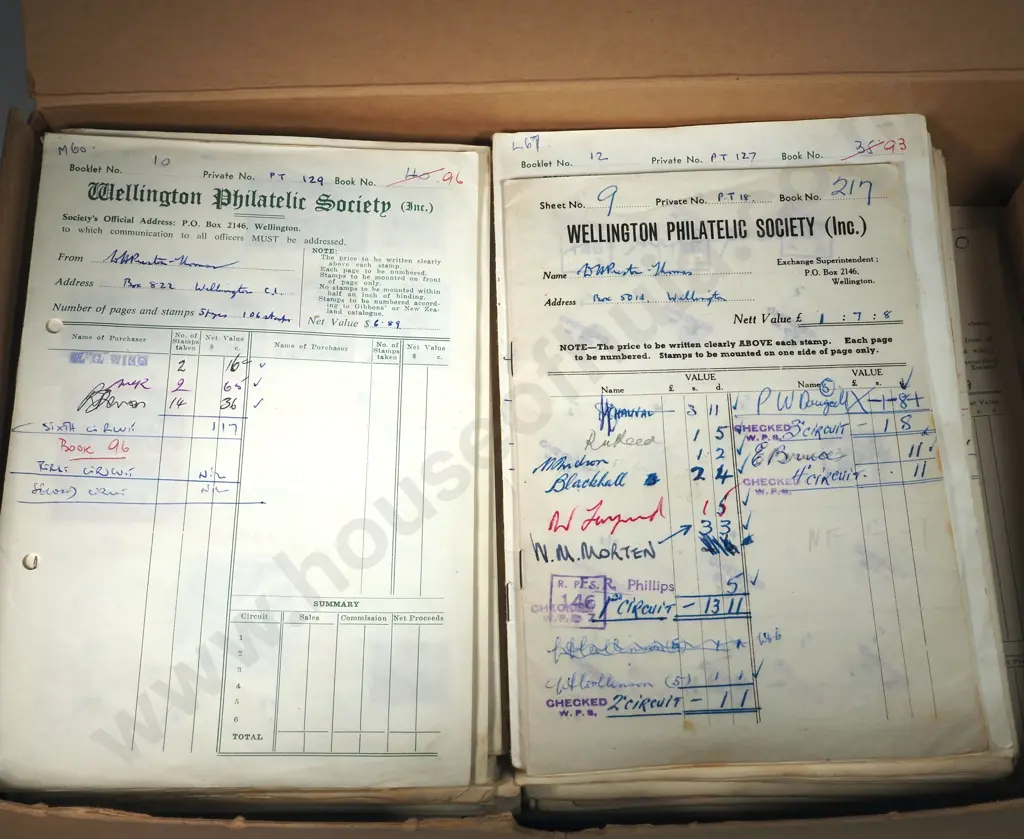 M60.
Booklet No. 10 Private No. PT 129 Book No. 40 96
Wellington Philatelic Society (Inc.)
Society's Official Address: P.O. Box 2146, Wellington.
to which communication to all officers MUST be addressed.
From
Address Box 822 Wellington C.1.
Number of pages and stamps 5 pages 106 stamps
NOTE:
The price to be written clearly
above each stamp.
Each page to be numbered.
Stamps to be mounted on front
of page only.
No stamps to be mounted within
half an inch of binding.
Stamps to be numbered accord-
ing to Gibbons' or New Zea-
land catalogue.
Net Value $ 6.89
Name of Purchaser No. of Stamps taken Net Value $ c. Name of Purchaser No. of Stamps taken Net Value $ c.
2 16
2 65
14 36
SIXTH CIRCUIT 1 17
BOOK 96
FIRST CIRCUIT NIL
SECOND CIRCUIT NIL
SUMMARY
Circuit Sales Commission Net Proceeds
1
2
3
4
5
6
TOTAL
L67
Booklet No. 12 Private No. PT 127 Book No. 38 93
Sheet No. 9 Private No. PT 18. Book No. 217
WELLINGTON PHILATELIC SOCIETY (Inc.)
Name
Exchange Superintendent;
P.O. Box 2146,
Wellington.
Address Box 5014, Wellington
Nett Value £ 1 : 7 : 8
NOTE—The price to be written clearly ABOVE each stamp. Each page
to be numbered. Stamps to be mounted on one side of page only.
Name VALUE £ s. d. Name VALUE £ s. d.
3 11
1 5
1 2
Blackhall 2 4
1 5
W.M. MORTEN 3 3
R. Phillips 5
R.P.S.
146
CHECKED
W.P.S.
1st CIRCUIT - 13 11
(5) 1 1
CHECKED
W.P.S.
2nd CIRCUIT - 1 1
P W Dougall - 1 8
CHECKED
W.P.S.
3rd CIRCUIT - 1 8
11
CHECKED
W.P.S.
4th CIRCUIT - 11
NF
www.houseof